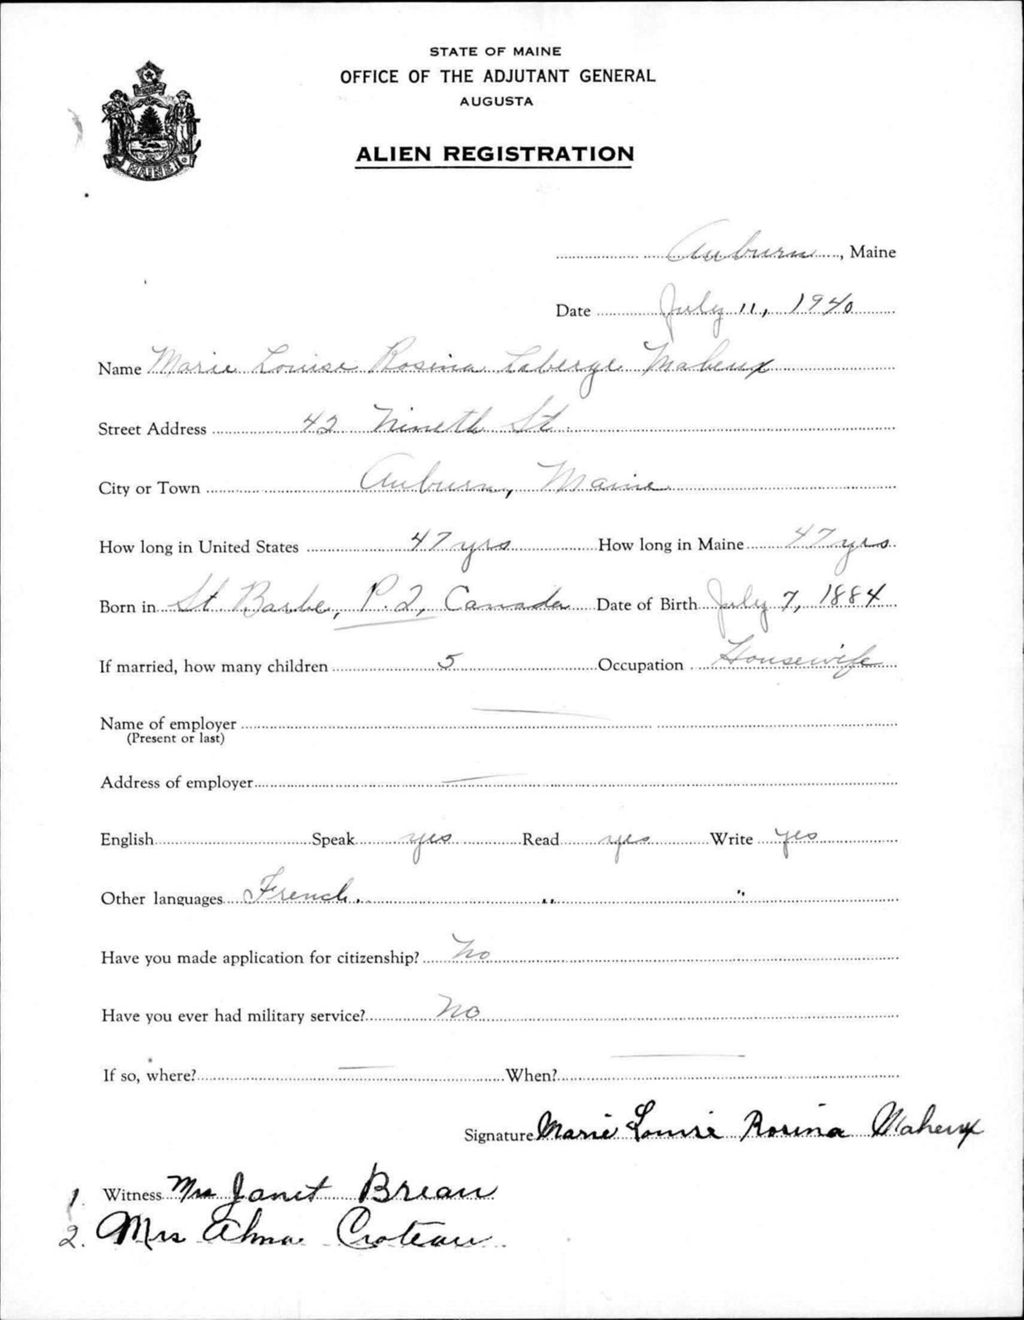 STATE OF MAINE
OFFICE OF THE ADJUTANT GENERAL
AUGUSTA
ALIEN REGISTRATION
MAINE
Auburn, Maine
Date July 11, 1940
Name Marie Louise Rosina Laberge Maheux
Street Address 42 Nineth St.
City or Town Auburn, Maine
How long in United States 47 yrs How long in Maine 47 yrs
Born in St. Barbe, P.Q, Canada Date of Birth July 7, 1884
If married, how many children 5 Occupation Housewife
Name of employer —
(Present or last)
Address of employer —
English Speak yes Read yes Write yes
Other languages French. " "
Have you made application for citizenship? No
Have you ever had military service? No
If so, where? — When? —
Signature Marie Louise Rosina Maheux
1. Witness Mrs Janet Breau
2. Mrs Alma Croteau